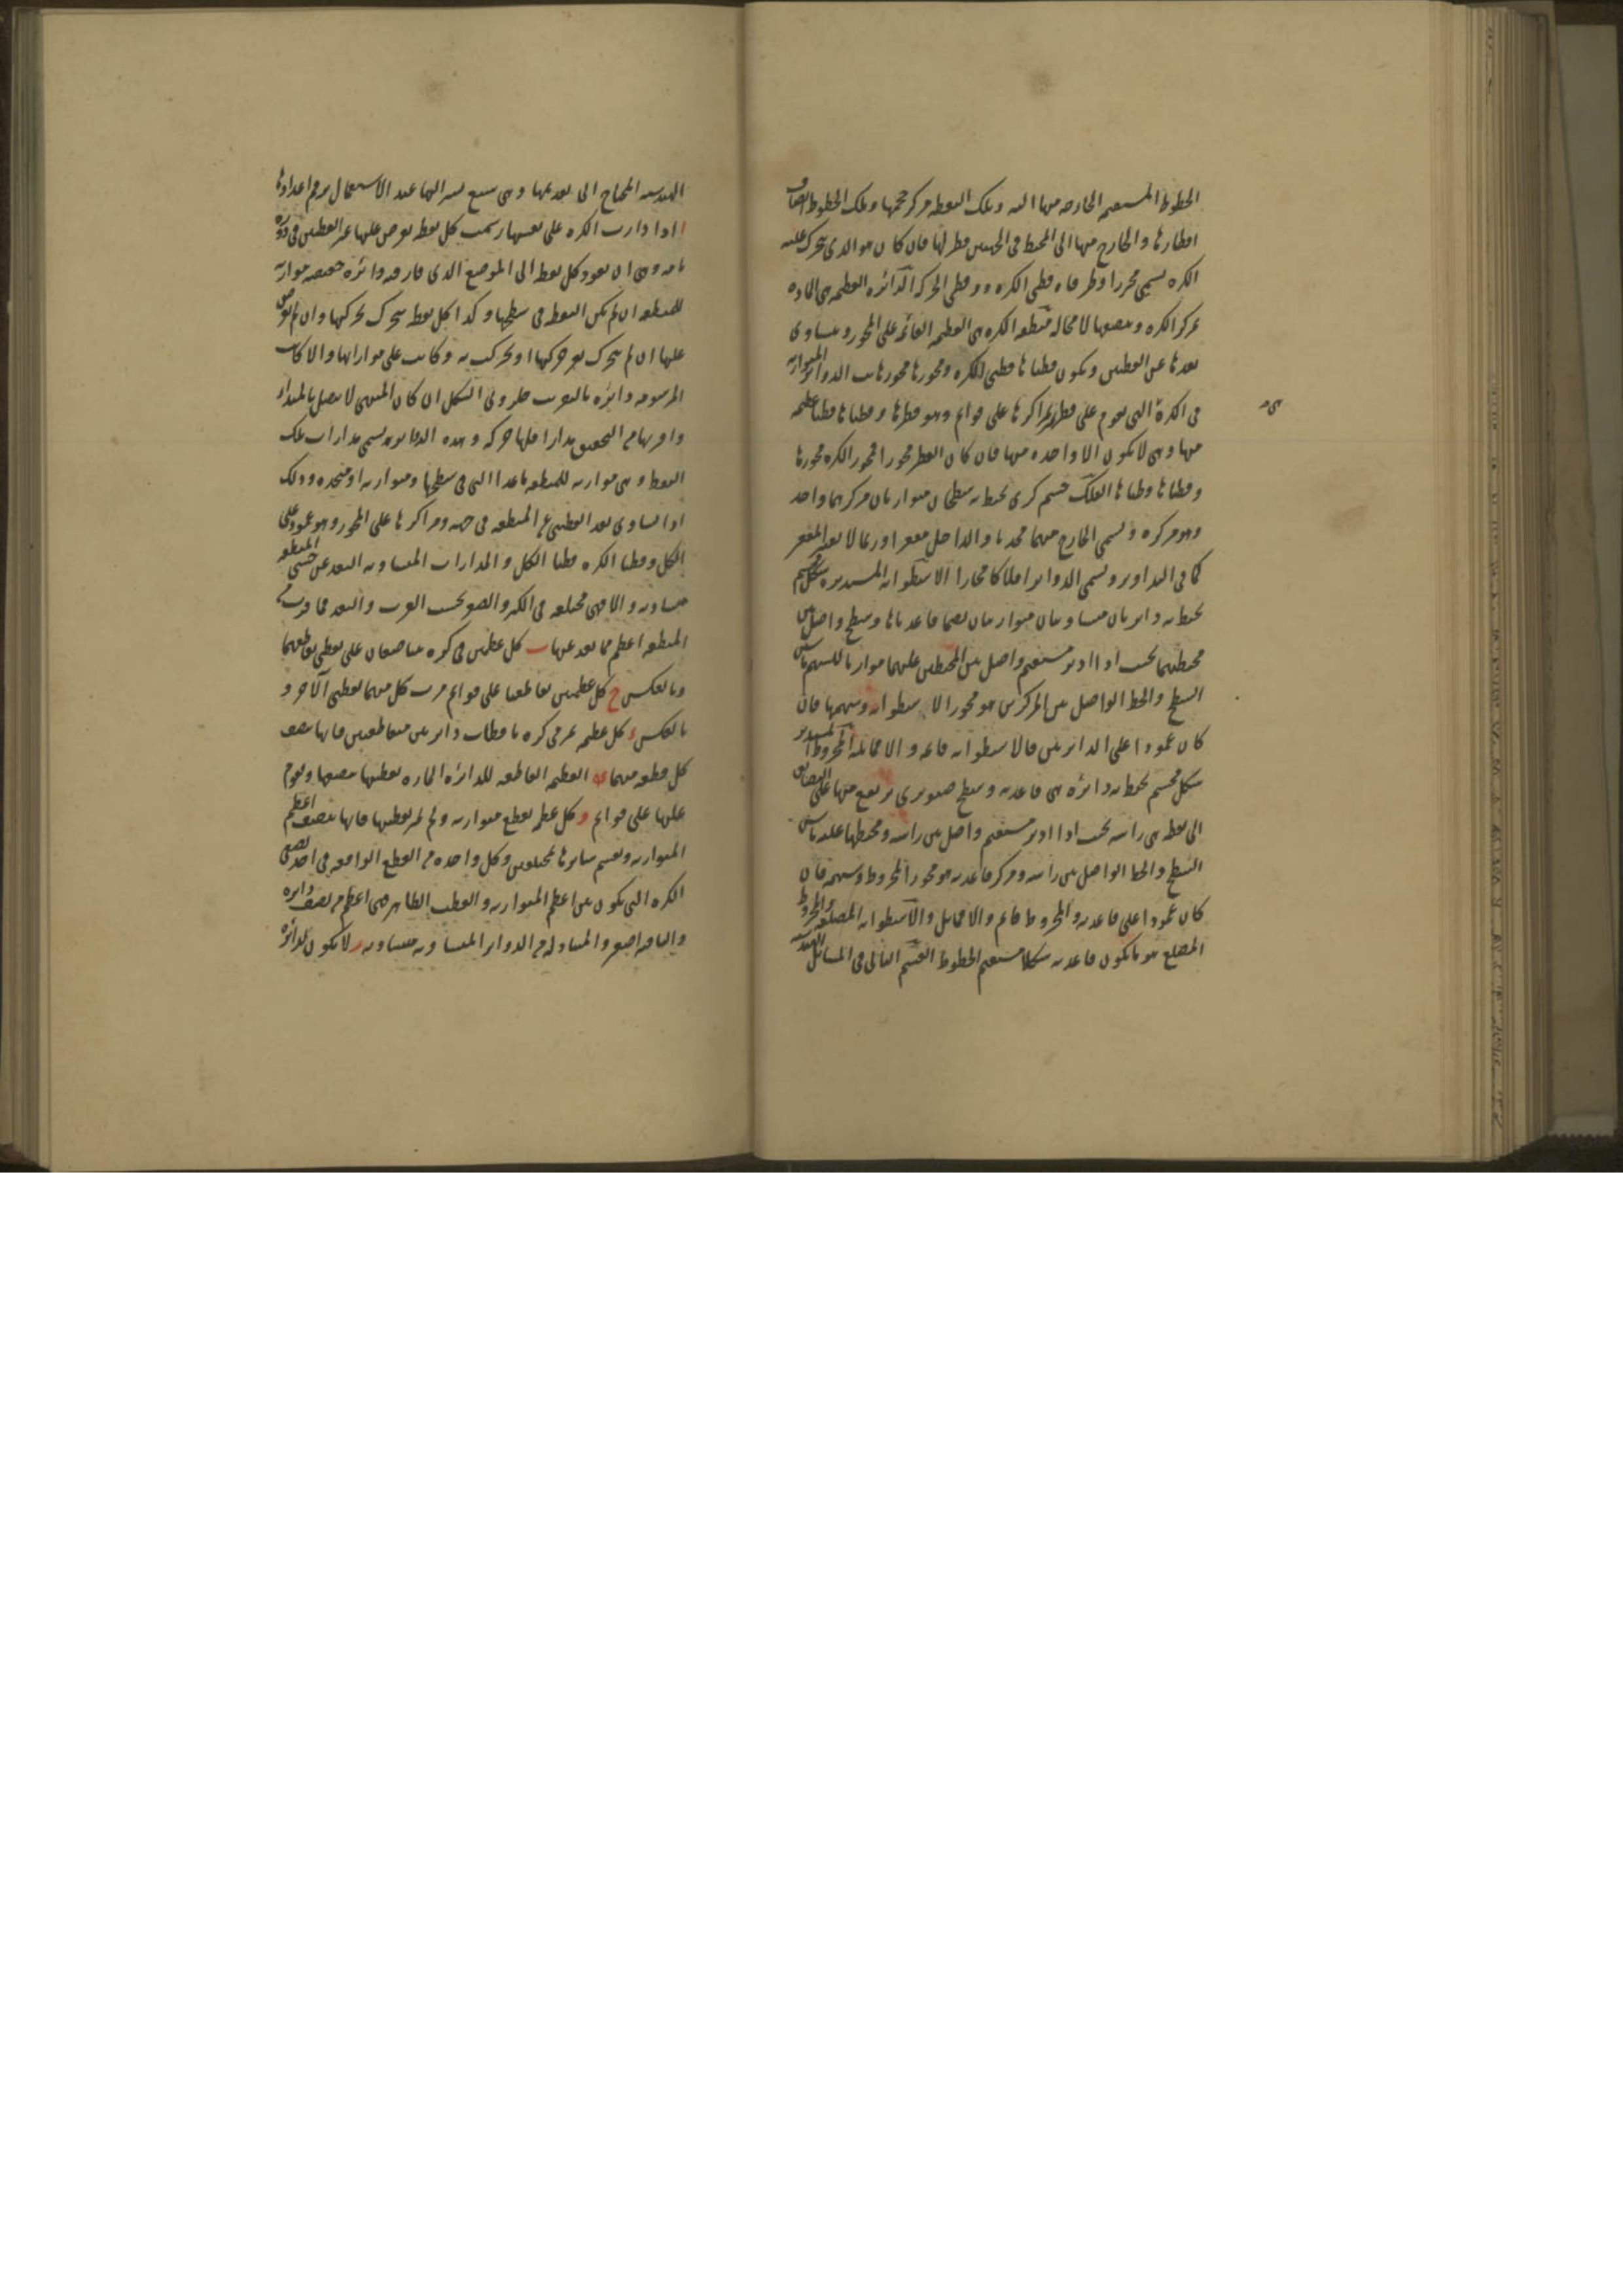 الخطوط المستقيمة الخارجة منها اليه وتلك النقطة مركز حجمها وتلك الخطوط انصاف
اقطارها والخارج منها الى المحيط في الجهتين قطر لها فان كان هو الذي يتحرك عليه
الكرة يسمى محورا وطرفاه قطبي الكرة وقطبي الحركة الدائرة العظيمة هي المارة
بمركز الكرة وينصفها لا محالة منطقة الكرة هي العظيمة القائمة على المحور ويتساوى
بعدها عن القطبين ويكون قطباها قطبي الكرة ومحورها محورها الدوائر المتوازية
في الكرة التي يقوم على قطر مراكزها على قوائم وهو قطرها وقطباها قطبا عظيمة
منها وهي لا تكون الا واحدة منها فان كان القطر محورا فمحور الكرة محورها
وقطباها قطباها الفلك جسم كري يحيط به سطحان متوازيان مركزهما واحد
وهو مركزه ويسمى الخارج منهما محدبا والداخل مقعرا وربما لا يعتبر المقعر
كما في التداوير ويسمى الدوائر افلاكا مجازا الاسطوانة المستديرة شكل مجسم
يحيط به دائرتان متساويتان متوازيتان هما قاعدتاها وسطح واصل بين
محيطيهما بحيث اذا ادير مستقيم واصل بين المحيطين عليهما موازيا للسهم ماس
السطح والخط الواصل بين المركزين هو محور الاسطوانة وسهمها فان
كان عمودا على الدائرتين فالاسطوانة قائمة والا فمائلة المخروط المستدير
شكل مجسم يحيط به دائرة هي قاعدته وسطح صنوبري يرتفع منها على التضايق
الى نقطة هي راسه بحيث اذا ادير مستقيم واصل بين راسه ومحيطها عليه ماس
السطح والخط الواصل بين راسه ومركز قاعدته هو محور المخروط وسهمه فان
كان عمودا على قاعدته والمخروط قائم والا فمائل والاسطوانة المضلعة والمخروط
المضلع هو ما يكون قاعدته شكلا مستقيم الخطوط القسم الثاني في المسائل
الهندسية المحتاج الى تقديمها وهي سبع يشير اليها عند الاستعمال برقم اعدادها
ا اذا دارت الكرة على نفسها رسمت كل نقطة تفرض عليها غير القطبين في دورة
تامة وهي ان يعود كل نقطة الى الموضع الذي فارقه دائرة حقيقية موازية
للمنطقة ان لم يكن النقطة في سطحها وكذا كل نقطة يتحرك بحركتها وان لم تفرض
عليها ان لم يتحرك بغير حركتها او تحركت به وكانت على موازاتها والا كانت
المرسومة دائرة بالتقريب حلزوني الشكل ان كان المنتهى لا يتصل بالمبداء
النقط وهي موازية للمنطقة ماعدا التي في سطحها ومتوازية او متحدة وذلك
اذا تساوى بعد النقطتين عن المنطقة في جهة ومراكزها على المحور وهو عمود على
الكل وقطبا الكرة قطبا الكل والمدارات المتساوية البعد عن جنبتي المنطقة
متساوية والا فهي مختلفة في الكبر والصغر بحسب القرب والبعد فما قرب من
المنطقة اعظم مما بعد عنها ب كل عظيمتين في كرة يتناصفان على نقطتي تقاطعهما
وبالعكس ج كل عظيمتين تقاطعتا على قوائم مرت كل منهما بقطبي الاخرى و
بالعكس د كل عظيمة تمر في كرة باقطاب دائرتين متقاطعتين فانها تنصف
كل قطعة منهما ه العظيمة القاطعة للدائرة المارة بقطبيها تنصفها وتقوم
عليها على قوائم و كل عظيمة تقطع متوازية ولم تمر بقطبيها فانها تنصف اعظم
المتوازية وتقسم سائرها بمختلفين وكل واحدة من القطع الواقعة في احد نصفي
الكرة التي تكون بين اعظم المتوازية والقطب الظاهر هي اعظم من نصف دائرة
والباقية اصغر والمتبادلة من الدوائر المتساوية متساوية ز لا يكون لدائرة